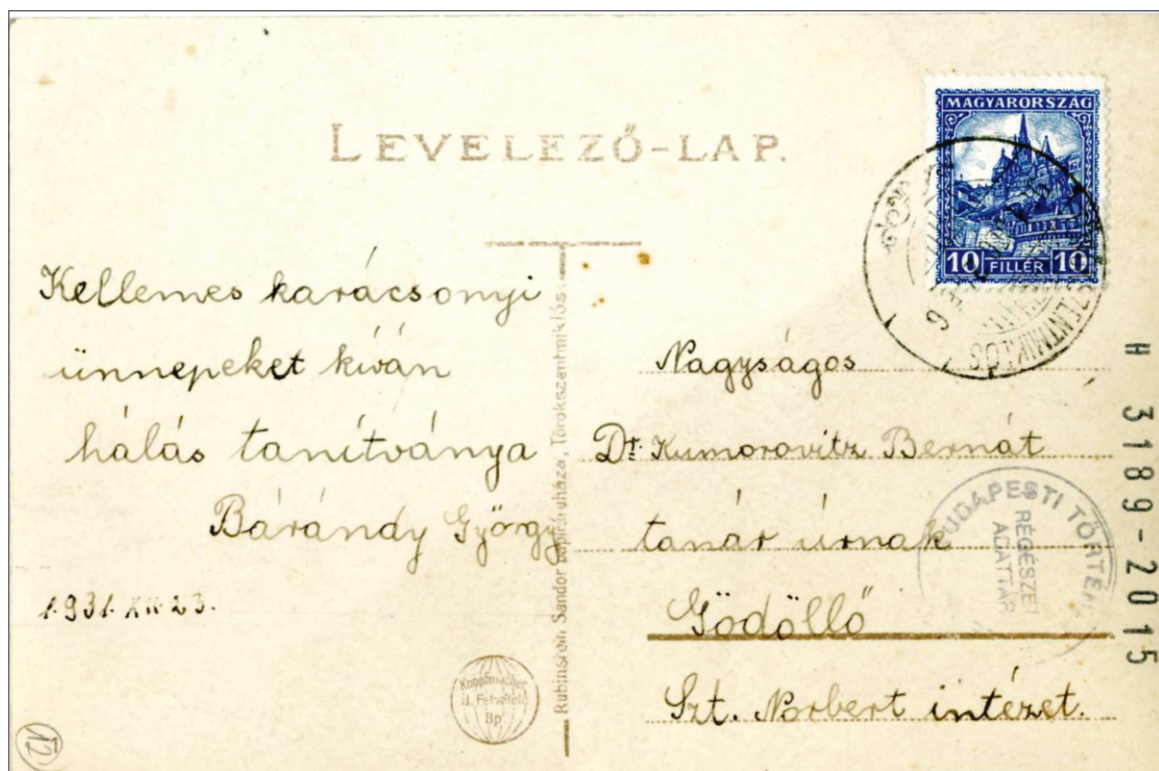 LEVELEZŐ-LAP.
MAGYARORSZÁG
10 FILLÉR 10
SZENTMIKLÓS
Kellemes karácsonyi
ünnepeket kíván
hálás tanítványa
Bárándy György
1931. XII. 23.
Rubinstein Sándor papíráruháza, Törökszentmiklós.
Nagyságos
Dr. Kumorovitz Bernát
tanár úrnak
Gödöllő
Szt. Norbert intézet.
BUDAPESTI TÖRTÉN
RÉGÉSZET
ADATTÁR
H 3189-2015
Knopfmacher
Bp.
12